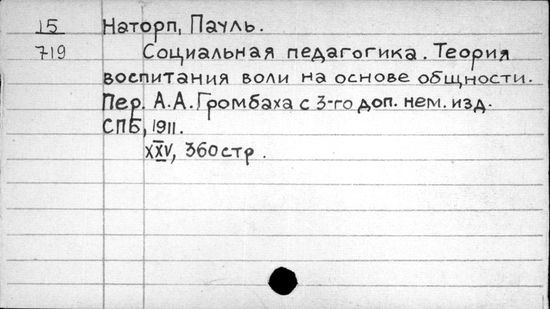 15 Наторп, Пауль.
719 Социальная педагогика. Теория
воспитания воли на основе общности.
Пер. А.А. Громбаха с 3-го доп. нем. изд.
СПБ, 1911.
XXV, 360 стр.